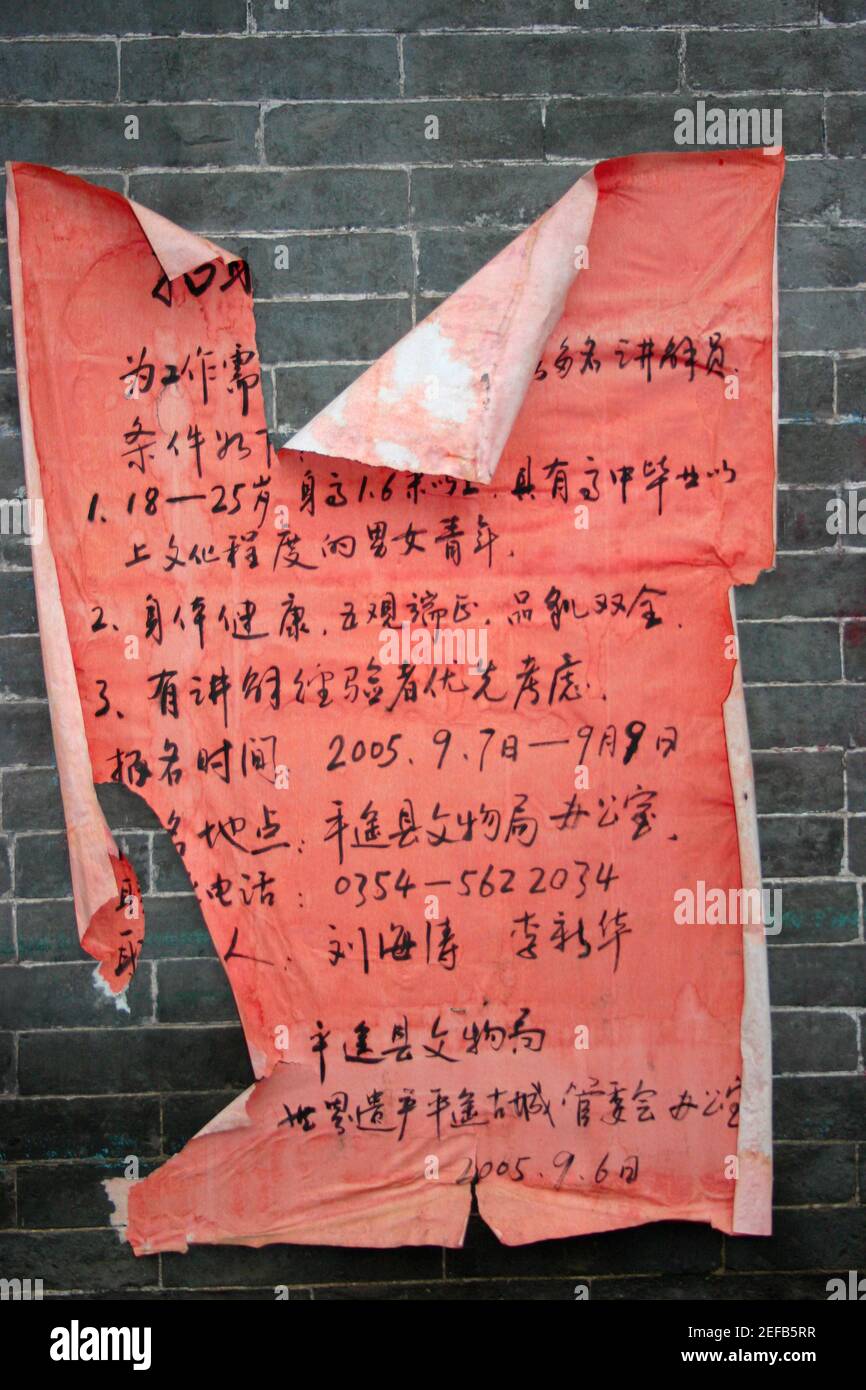 招
为工作需 名讲解员.
条件如下
1. 18—25岁 身高1.6米以上. 具有高中毕业以
上文化程度的男女青年.
2. 身体健康. 五观端正. 品貌双全.
3、有讲解经验者优先考虑.
报名时间 2005.9.7日—9月9日
名地点: 平遥县文物局办公室.
电话: 0354—5622034
人: 刘海涛 李新华
平遥县文物局
世界遗产平遥古城管委会办公室
2005.9.6日
alamy
alamy
alamy
Image ID: 2EFB5RR
www.alamy.com